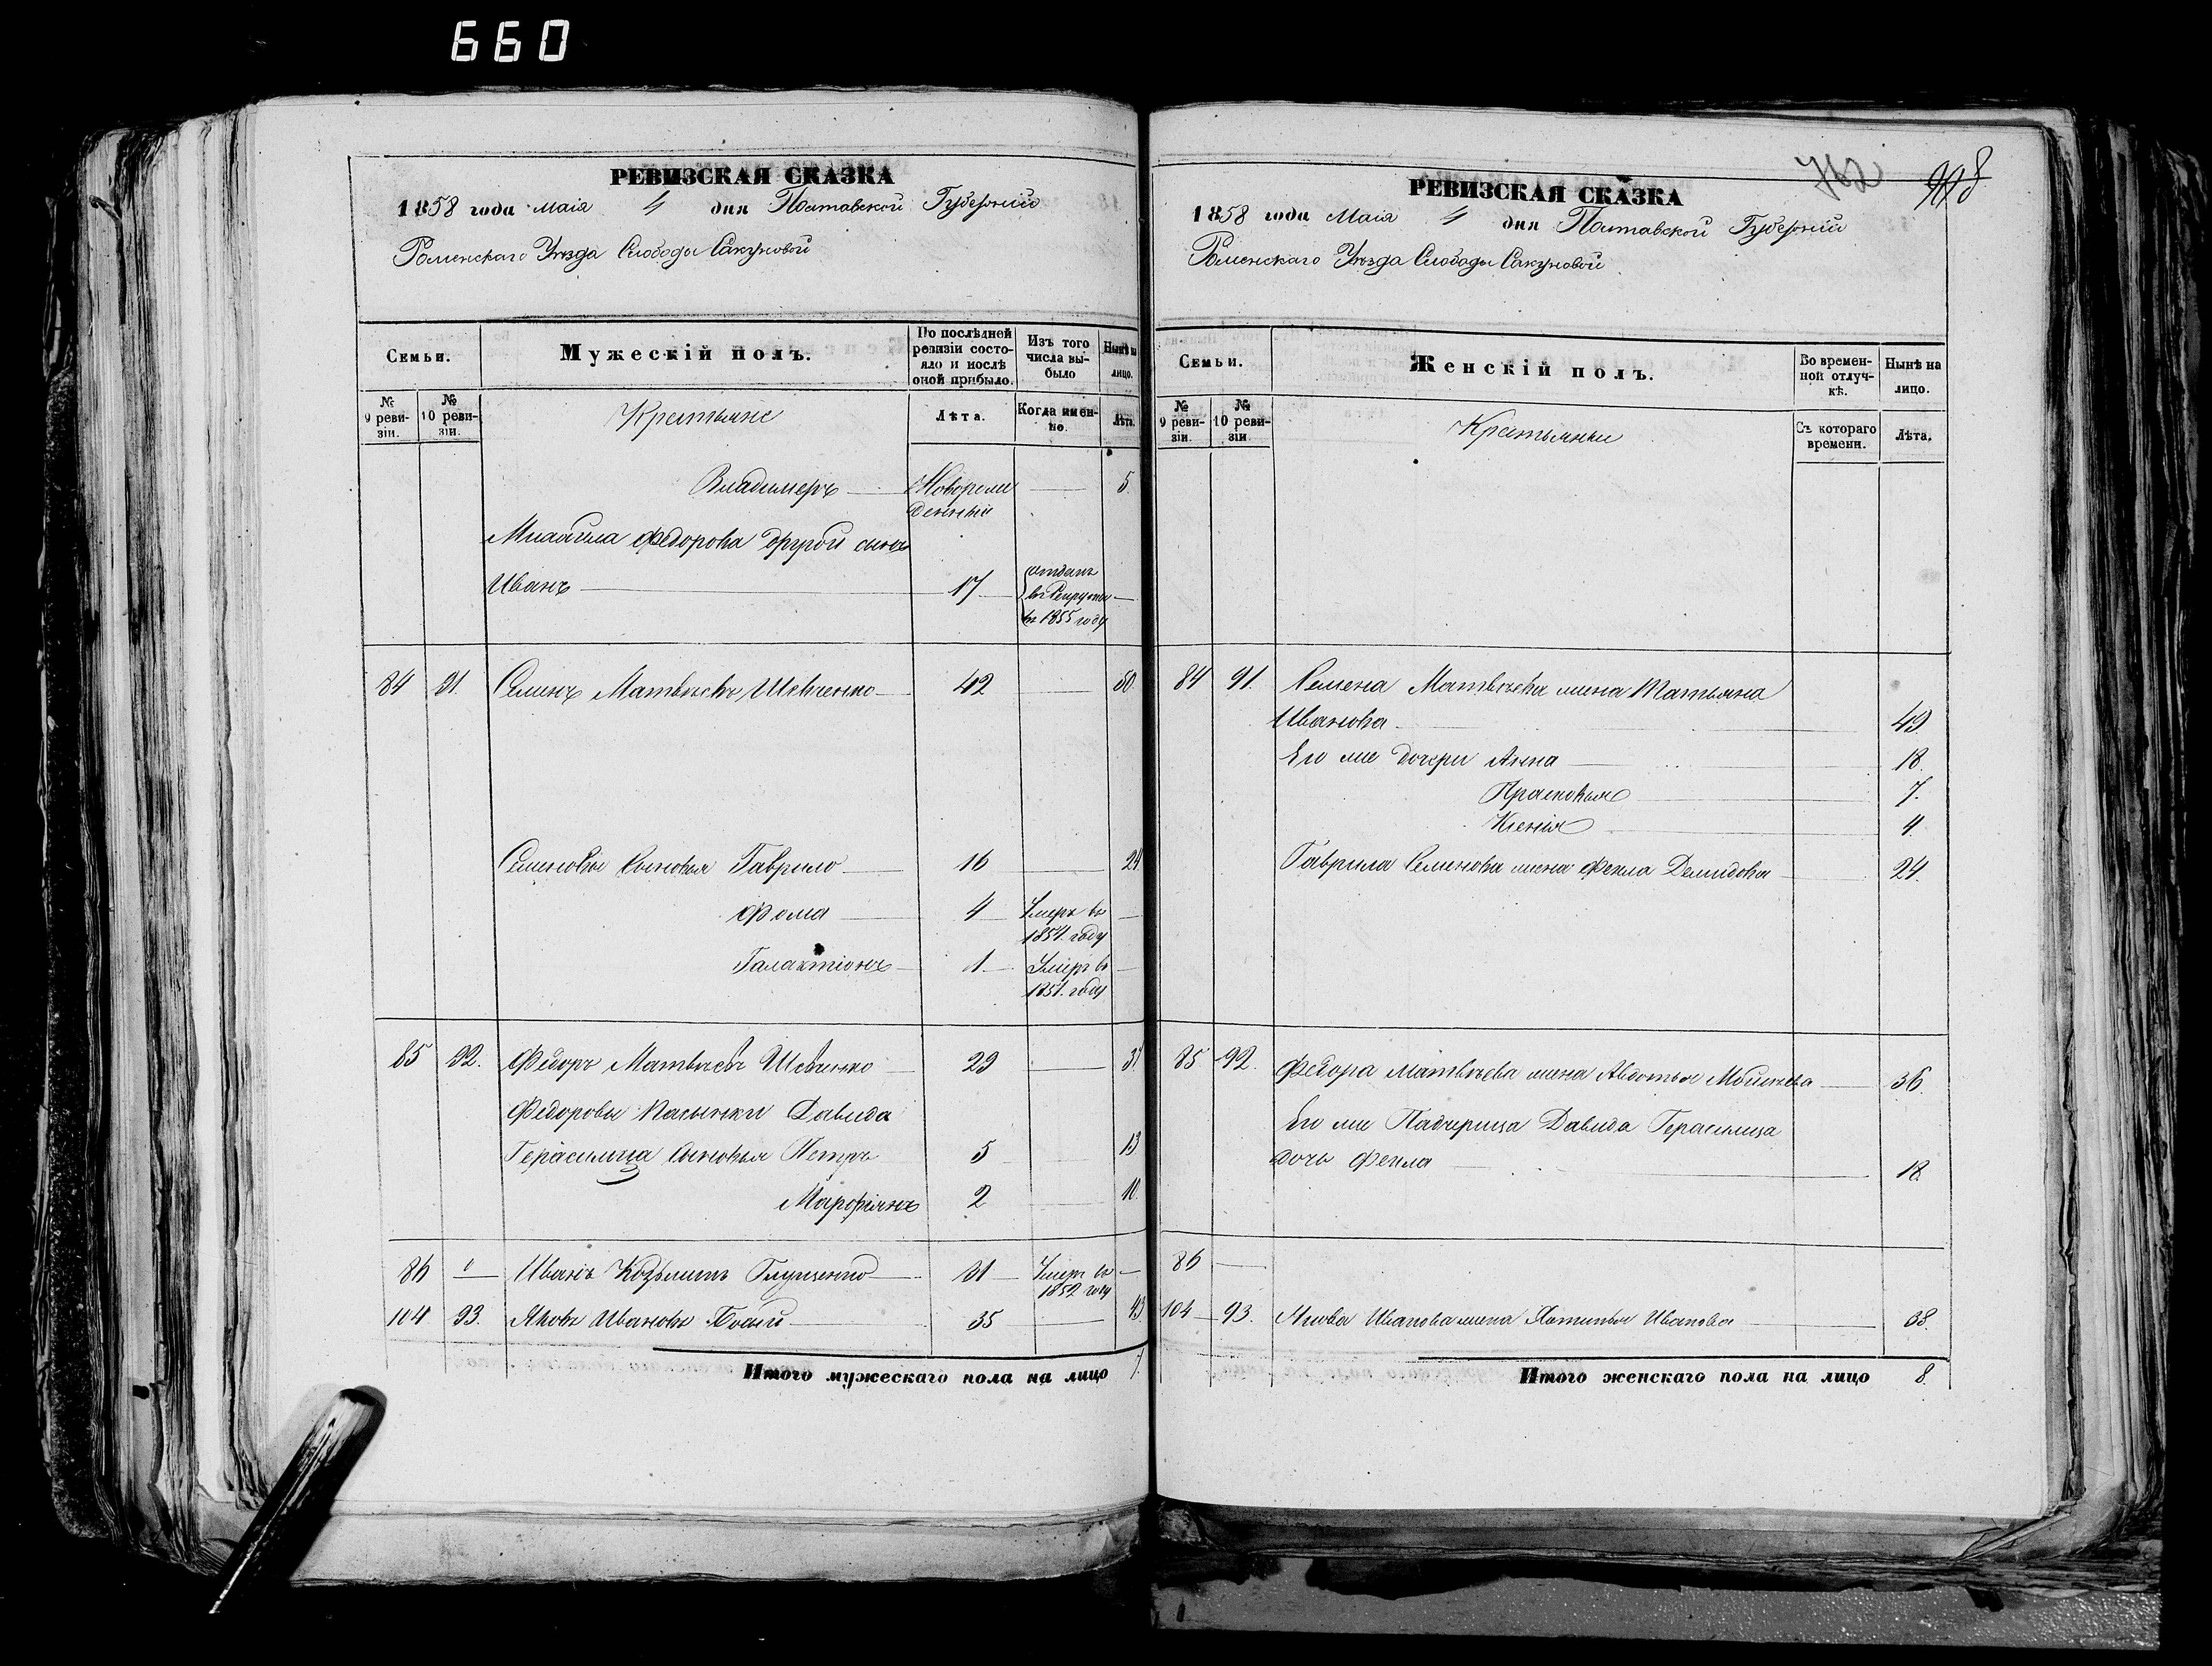 660
РЕВИЗСКАЯ СКАЗКА
1858 года Маія 4 дня Полтавской Губерніи
Роменскаго Уѣзда Слободы Сакуновой
Семьи.
Мужескій полъ.
По послѣдней ревизіи состояло и послѣ оной прибыло.
Изъ того числа выбыло
Нынѣ на лицо.
№ 9 ревизіи.
№ 10 ревизіи.
Крестьяне
Лѣта.
Когда именно.
Лѣта.
Владимеръ Новорожденный 5
Михайла Федорова другой сынъ
Иванъ 17 отданъ в Рекруты в 1855 году
84 91. Семенъ Матвѣевъ Шевченко 42 50
Семеновы Сыновья Гаврило 16 24
Фома 4 Умеръ въ 1854 году
Галактіонъ 1 Умеръ въ 1851 году
85 92. Федоръ Матвѣевъ Шевченко 29 37
Федоровы Пасынки Давида
Герасимца Сыновья Петръ 5 13
Марофіянъ 2 10.
86 Иванъ Козьминъ Глущенко 31 Умеръ въ 1852 году
104 93. Яковъ Ивановъ Босый 35 43
Итого мужескаго пола на лицо 7.
762 908
РЕВИЗСКАЯ СКАЗКА
1858 года Маія 4 дня Полтавской Губерніи
Роменскаго Уѣзда Слободы Сакуновой
Семьи.
Женскій полъ.
Во временной отлучкѣ.
Нынѣ на лицо.
№ 9 ревизіи.
№ 10 ревизіи
Крестьянки
Съ котораго времени.
Лѣта.
84 91. Семена Матвѣева жена Татьяна
Иванова 49
Его же дочери Анна 18.
Прасковья 7.
Ксенія 4
Гаврила Семенова жена Фекла Демидова 24.
85 92. Федора Матвѣева жена Авдотья 36.
Его же Падчерица Давида Герасимца
дочь Фекла 18.
86
104 93. Якова Иванова жена Иванова 38.
Итого женскаго пола на лицо 8.